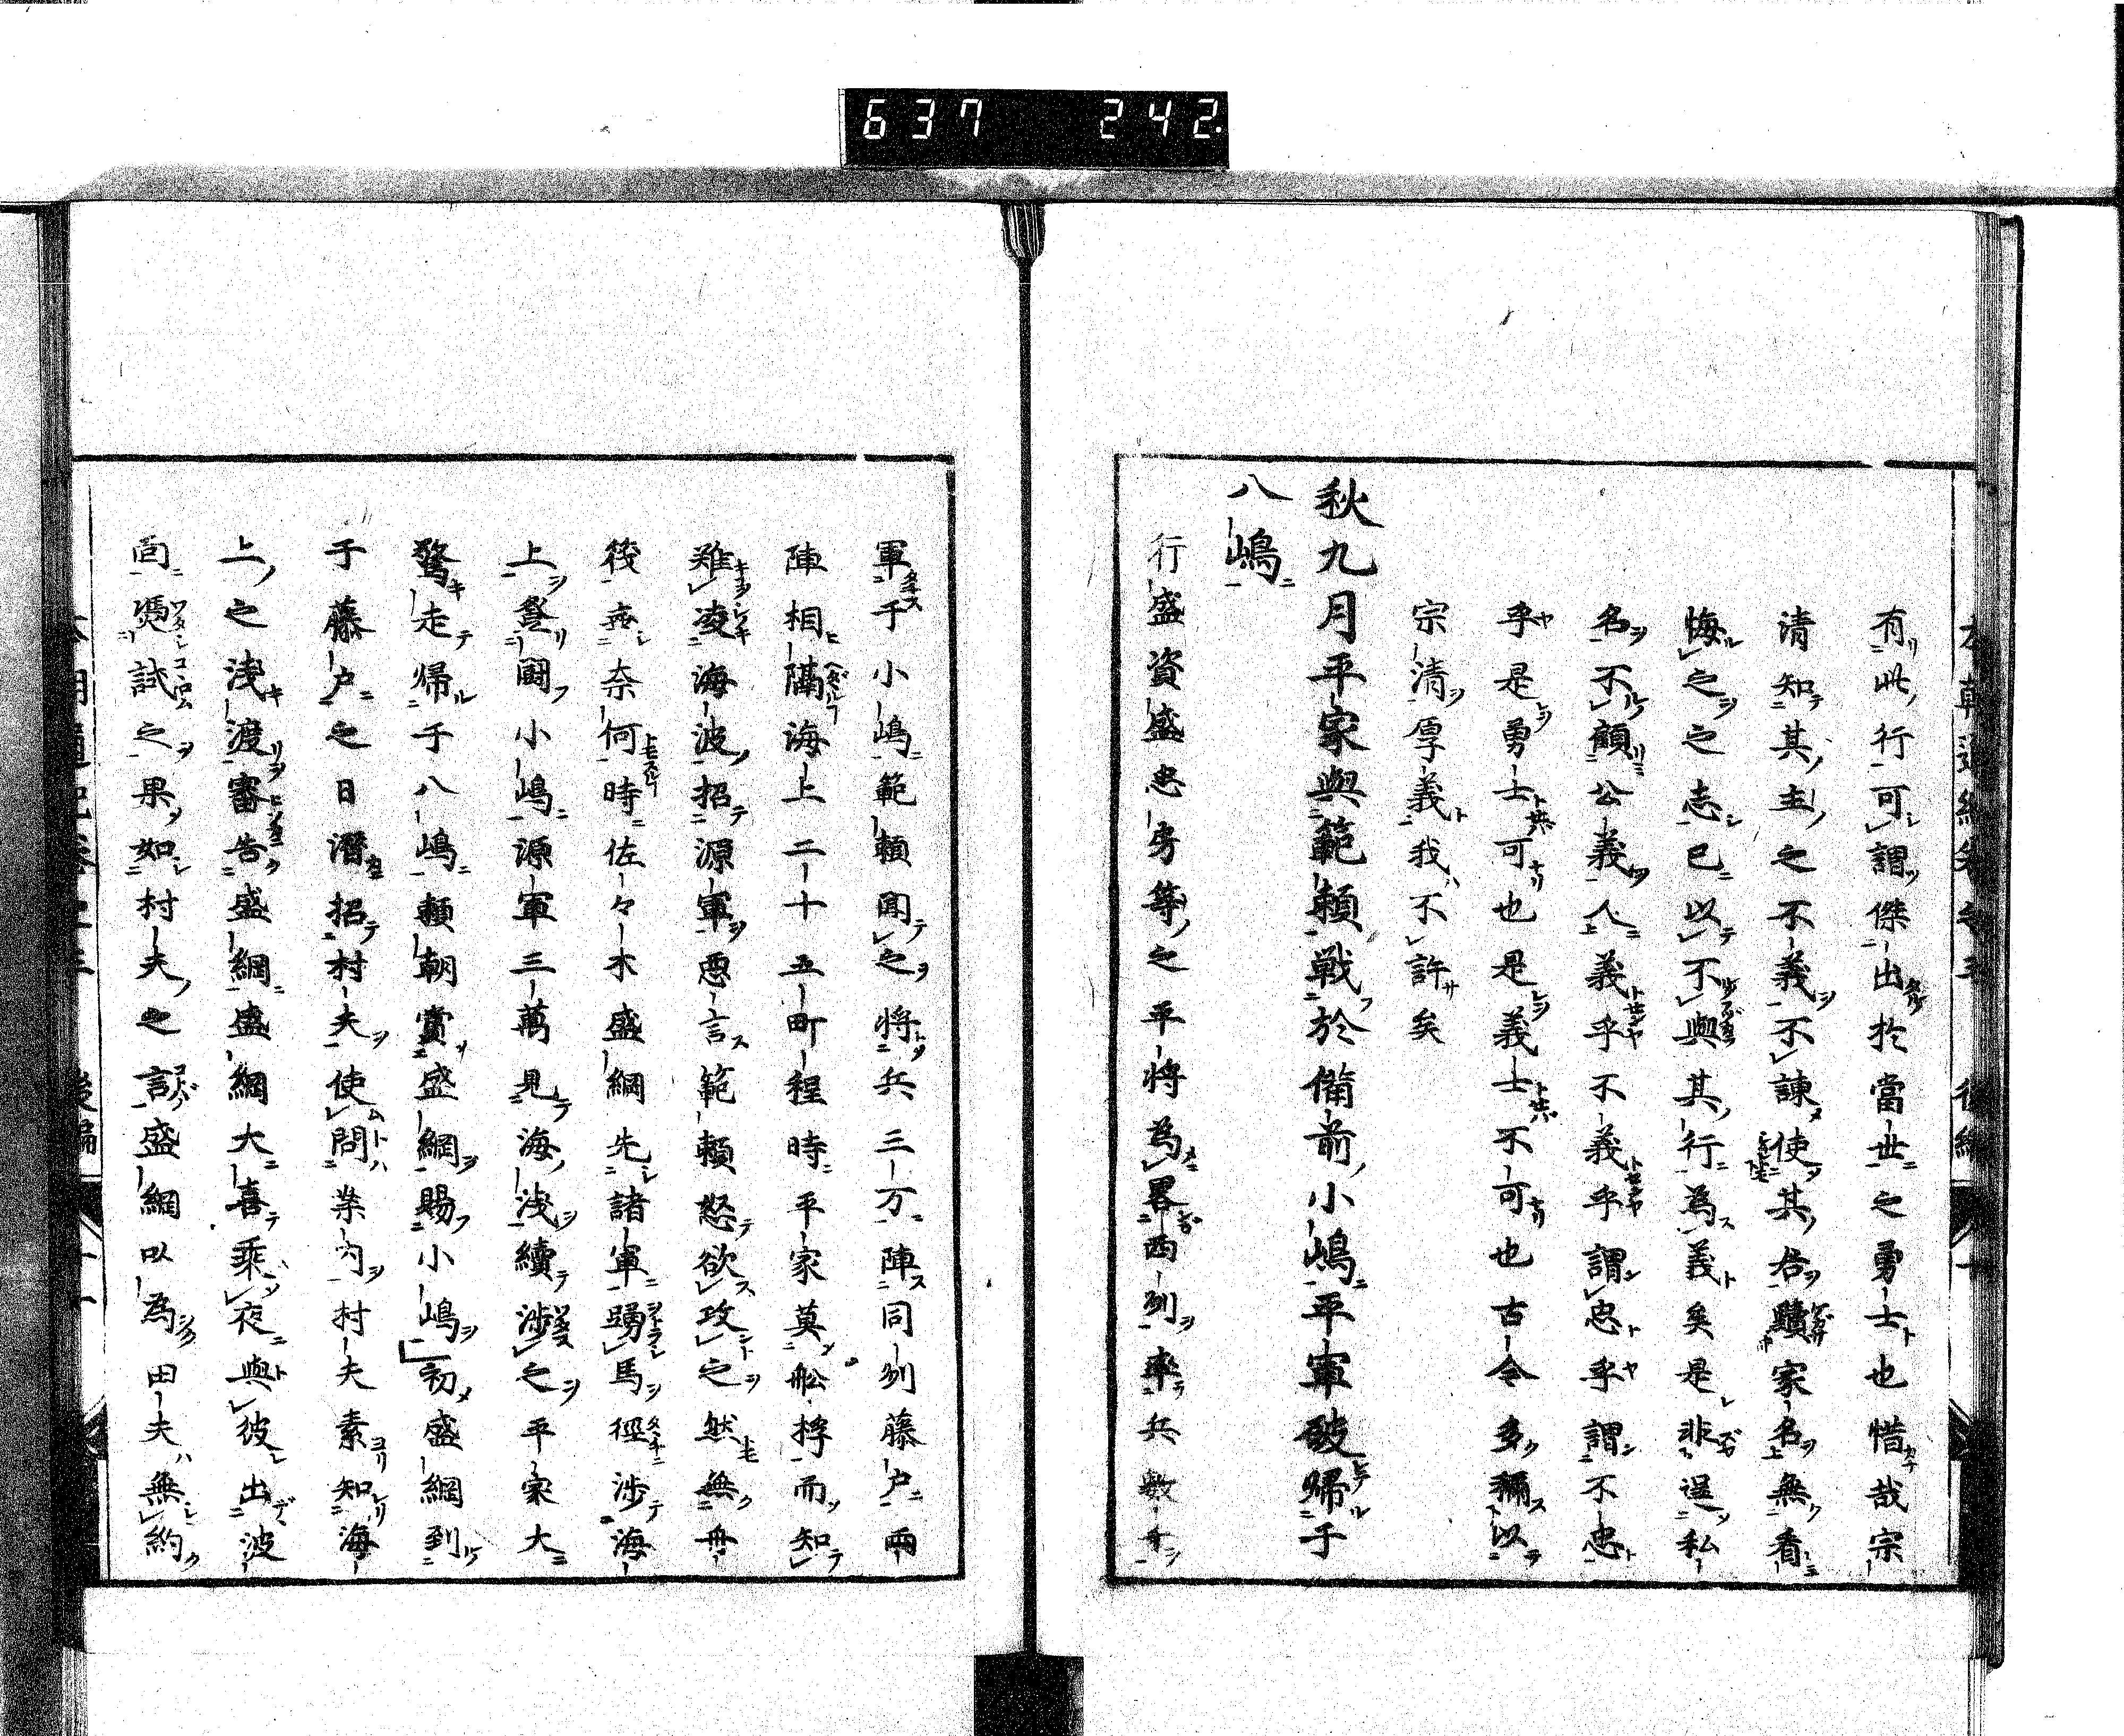 637 242.
有此行可謂傑出於當世之勇士也惜哉宗
清知其主之不義不諌使其君贖家名無看
悔之之志已以不與其行為義矣是非逞私
名不顧公義人義乎不義乎謂忠乎謂不忠
乎是勇士可也是義士不可也古今多稱以
宗清厚義我不許矣
秋九月平家與範頼戦於備前小嶋平軍破帰于
八嶋
行盛資盛忠房等之平將為畧西列率兵數千
軍于小嶋範頼聞之將兵三万陣同列藤戸兩
陣相隔海上二十五町程時平家莫舩捊而知
難凌海波招源軍悪言範頼怒欲攻之然無舟
筏奈何時佐々木盛綱先諸軍踴馬徑渉海
上登闘小嶋源軍三萬見海浅續渉之平家大
驚走帰于八嶋頼朝賞盛綱賜小嶋初盛綱到
于藤戸之日潛招村夫使問案内村夫素知海
上之浅渡審告盛綱盛綱大喜乘夜與彼出波
面試之果如村夫之言盛綱以為田夫無約